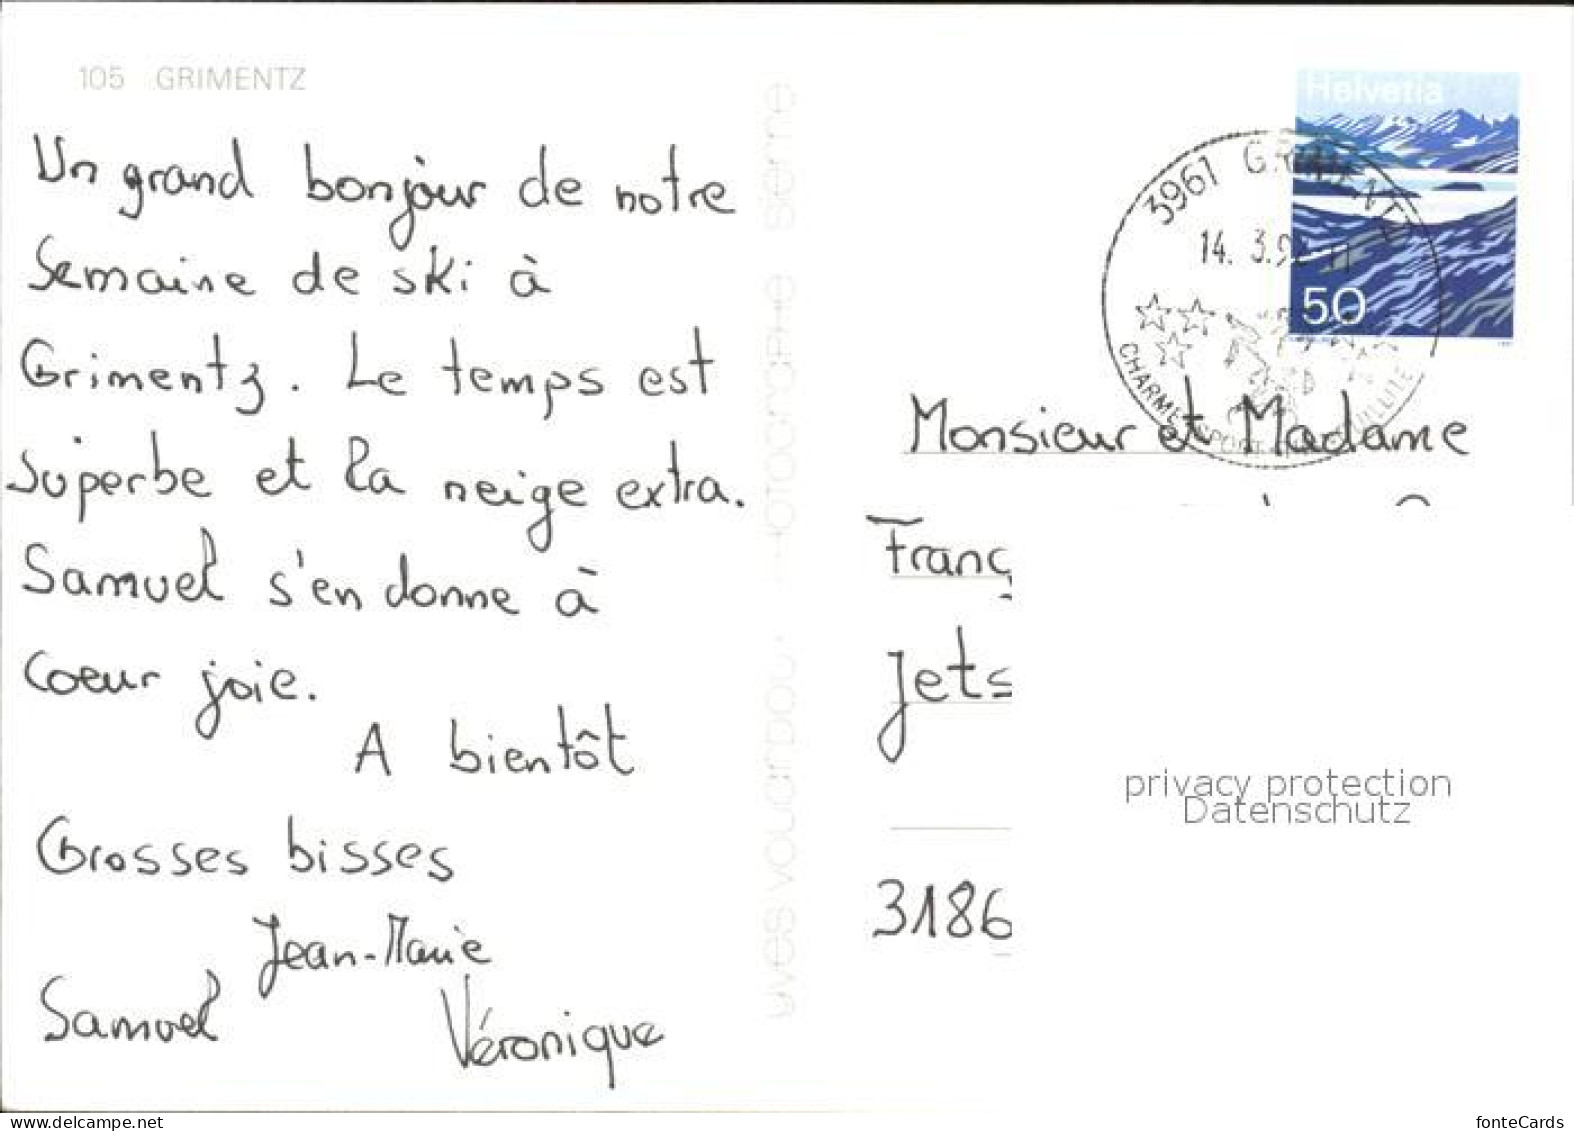 105 GRIMENTZ
Un grand bonjour de notre
Semaine de ski à
Grimentz. Le temps est
superbe et la neige extra.
Samuel s'en donne à
coeur joie.
A bientôt
Grosses bisses
Jean-Marie
Samuel
Véronique
yves vouardoux PHOTOGRAPHE sierre
Helvetia
50
3961 GRIMENTZ
14. 3.9
CHARME SPORT
Monsieur et Madame
Franç
Jets
3186
privacy protection
Datenschutz
www.delcampe.net
fonteCards